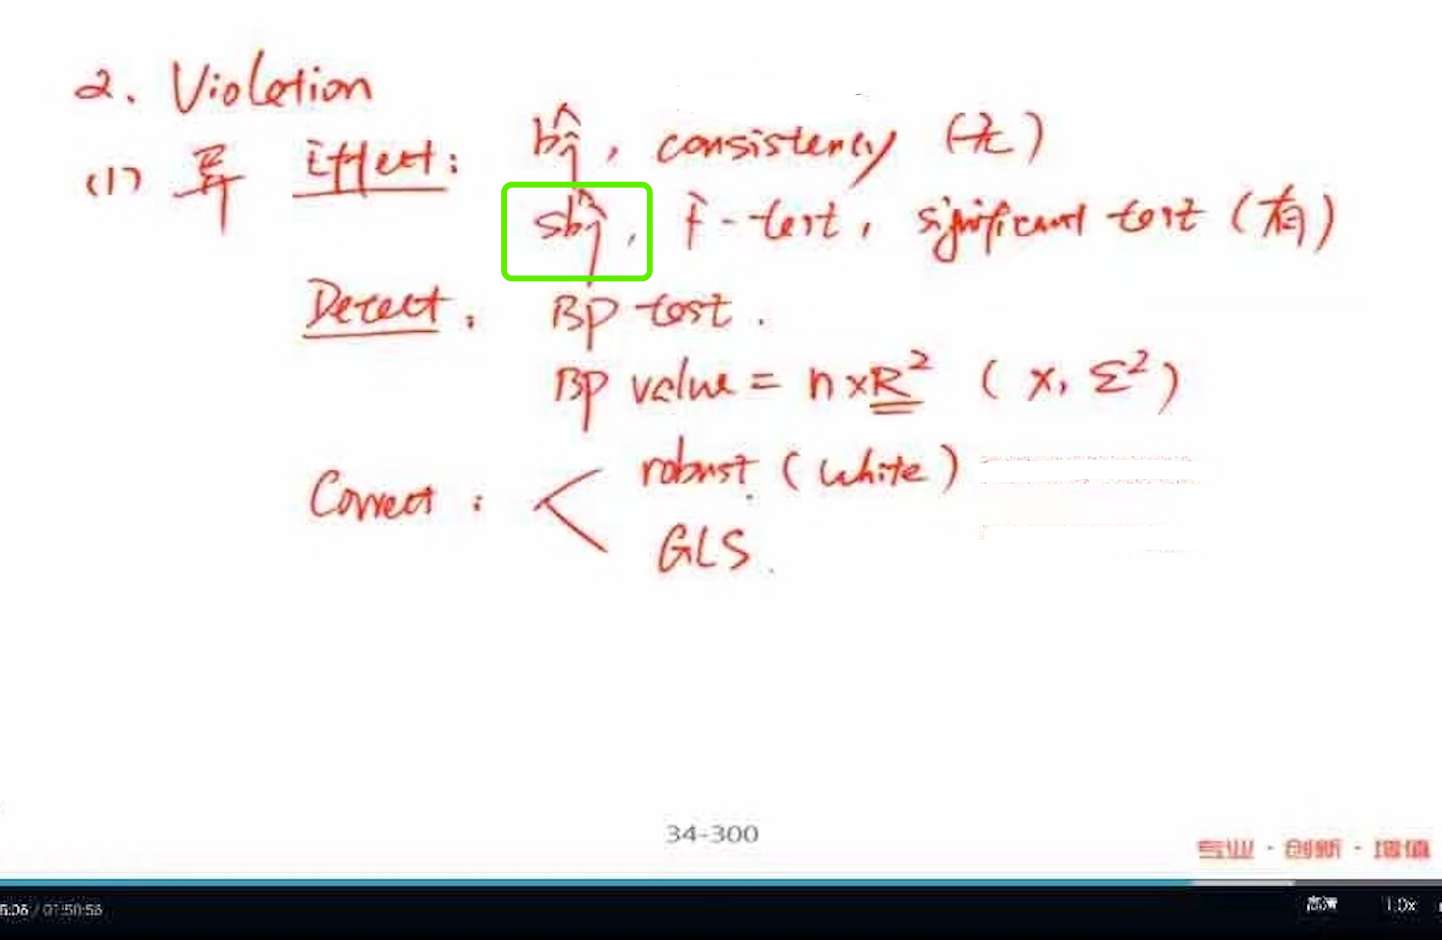 2. Violation
(1) 异 Effect: b̂j, consistency (无)
sb̂j, F-test, significant test (有)
Detect: BP test.
BP value = n×R² (X, Σ²)
Correct: < robust (white)
GLS.
34-300
专业·创新·增值
6:06 / 01:50:56
高清 1.0x